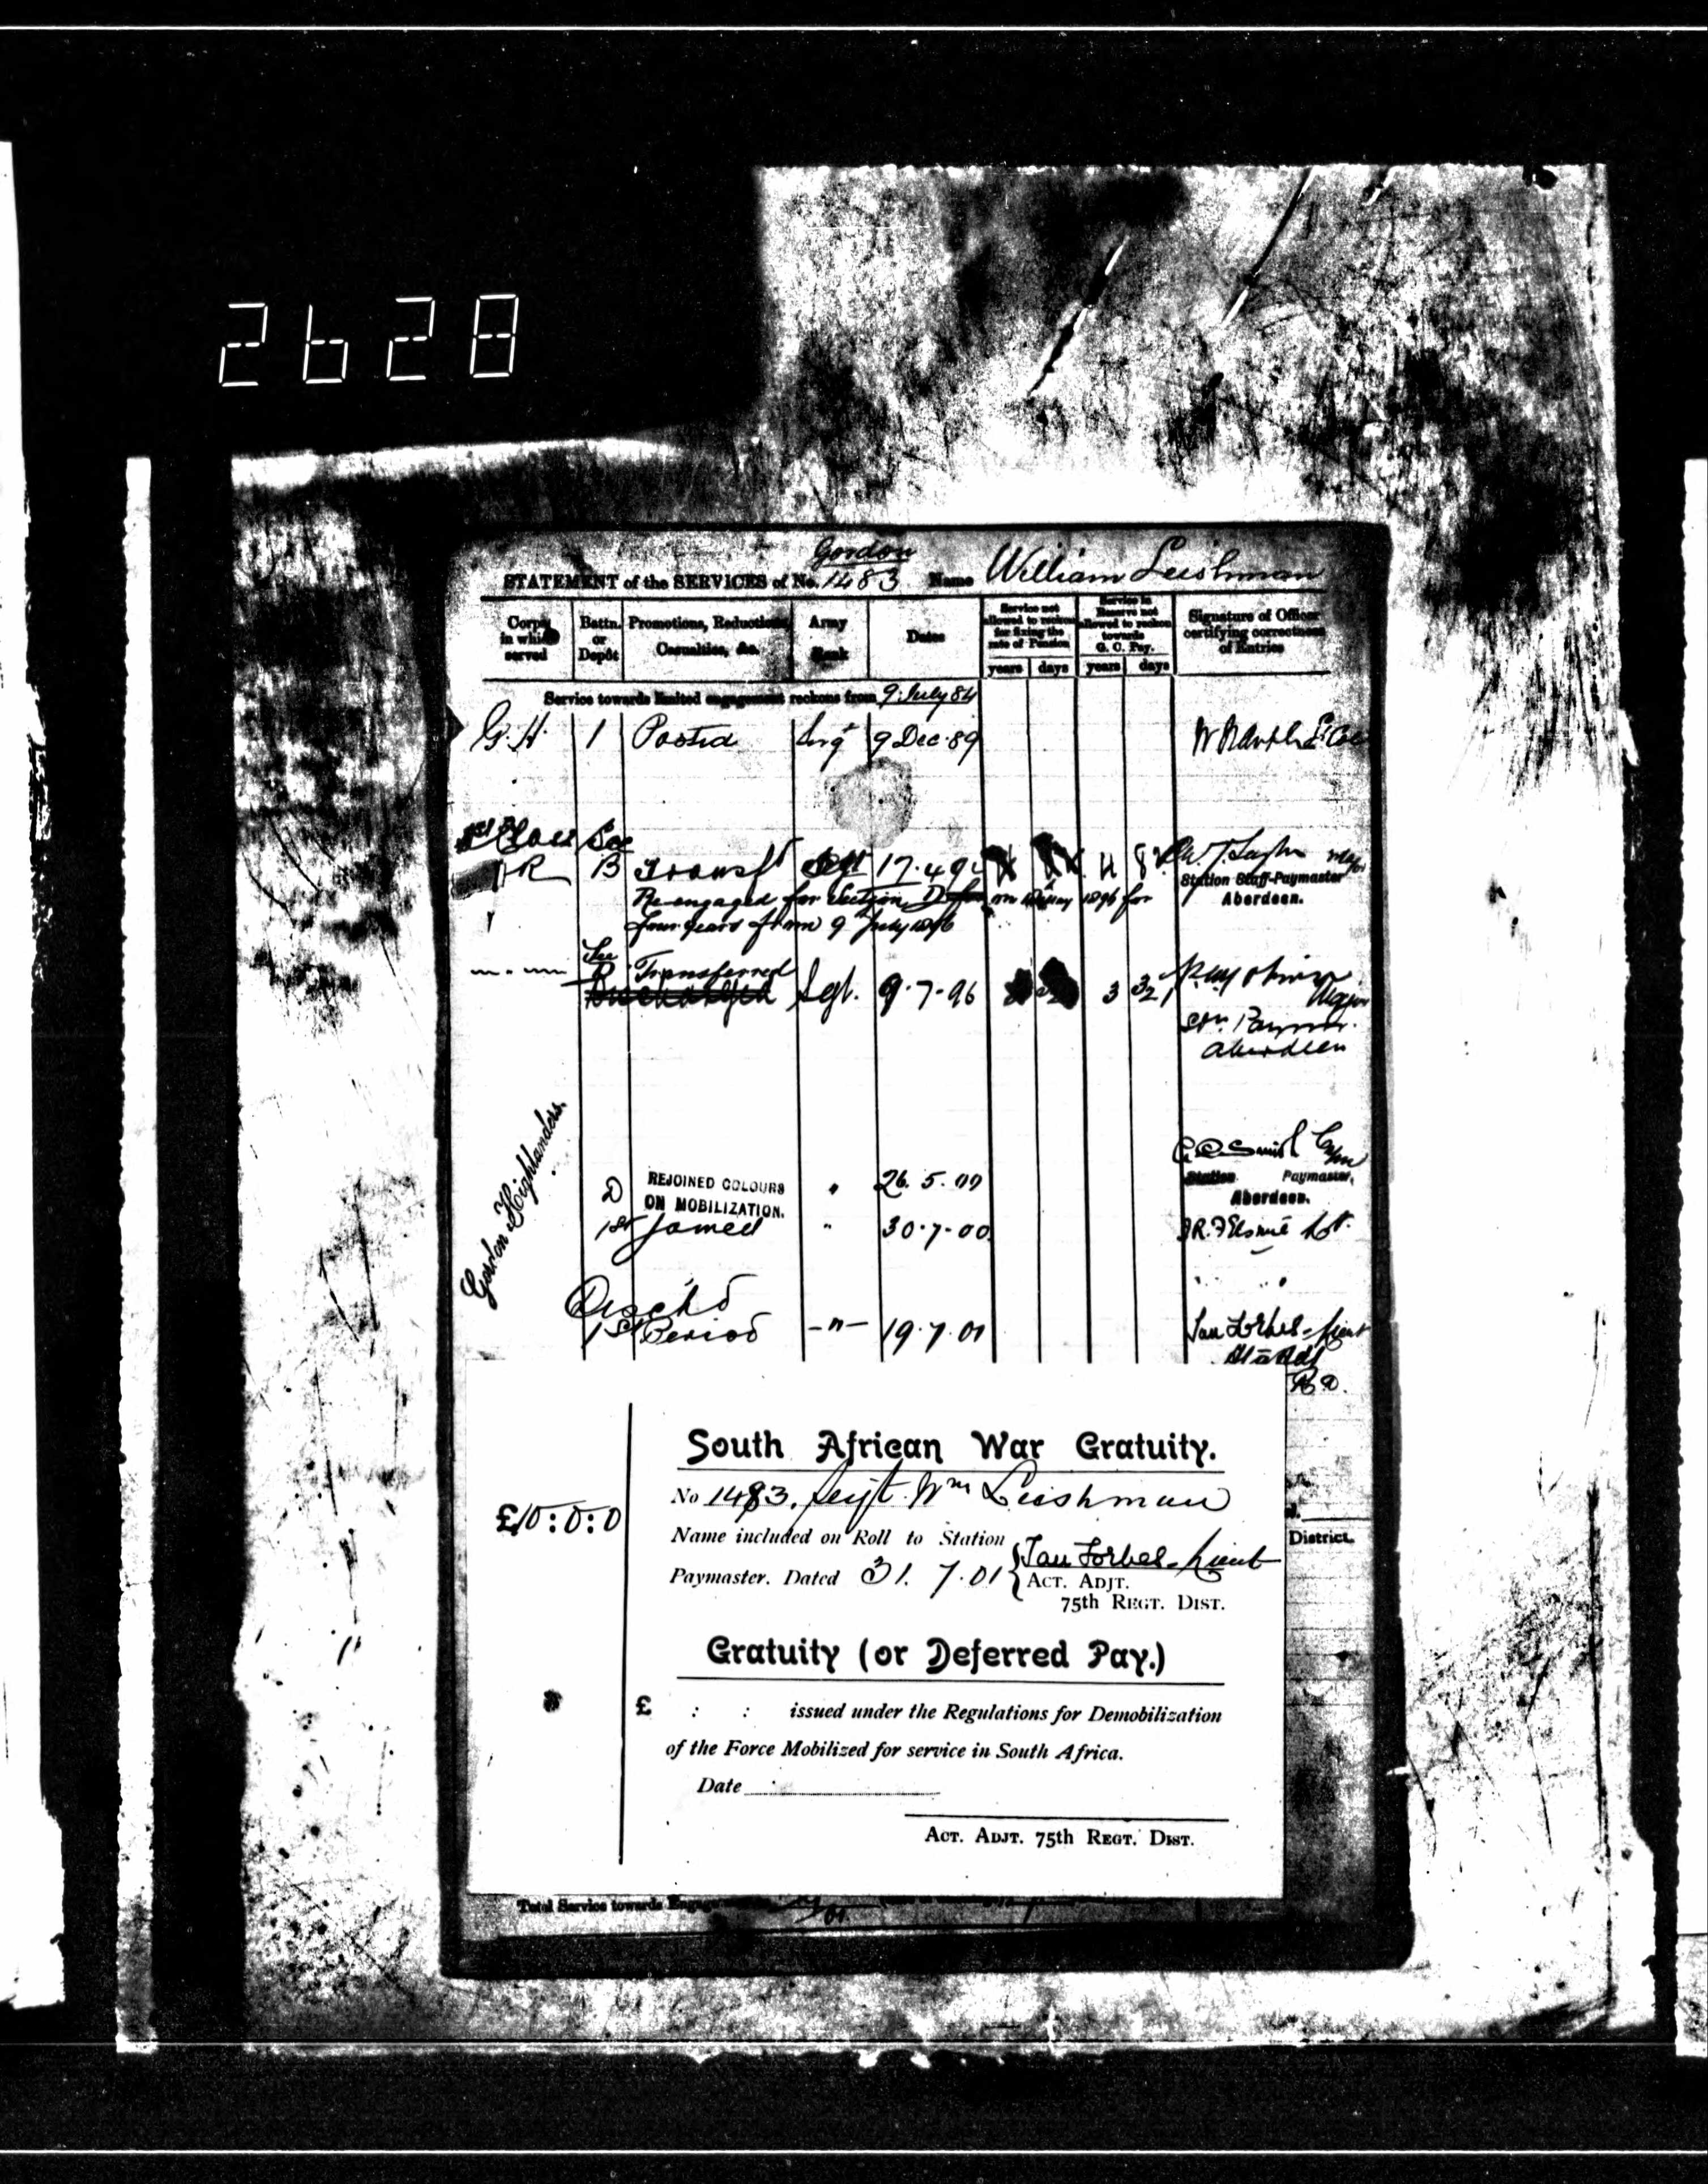 2628
Gordon
STATEMENT of the SERVICES of No. 1483 Name William Leishman
Corps in which served
Battn. or Depôt
Promotions, Reductions, Casualties, &c.
Army Rank
Dates
Service not allowed to reckon for fixing the rate of Pension
years days
Service in Reserve not allowed to reckon towards G. C. Pay.
years days
Signature of Officer certifying correctness of Entries
Service towards limited engagement reckons from 9 July 84
G.H. 1 Posted Sergt 9 Dec. 89
1st Class Sec
A R B Transfd Sgt 17.4.92
Station Staff-Paymaster
Aberdeen.
Re-engaged for Section D on May 1896 for
four years from 9 July 1896
Sec
D Transferred
Discharged Sgt. 9.7.96 3 321
Major
Stn. Paymr.
Aberdeen
Gordon Highlanders.
C.C. Smith
D REJOINED COLOURS " 26.5.00
ON MOBILIZATION.
Station Paymaster,
Aberdeen.
1st Joined " 30.7.00
Disch'd
1st Period -"- 19.7.01 Ian Forbes - Lieut
South African War Gratuity.
No 1483, Sergt. Wm Leishman
£10:0:0
Name included on Roll to Station
Paymaster. Dated 31.7.01 { Ian Forbes - Lieut
ACT. ADJT.
75th REGT. DIST.
District.
Gratuity (or Deferred Pay.)
£ : : issued under the Regulations for Demobilization
of the Force Mobilized for service in South Africa.
Date
ACT. ADJT. 75th REGT. DIST.
Total Service towards